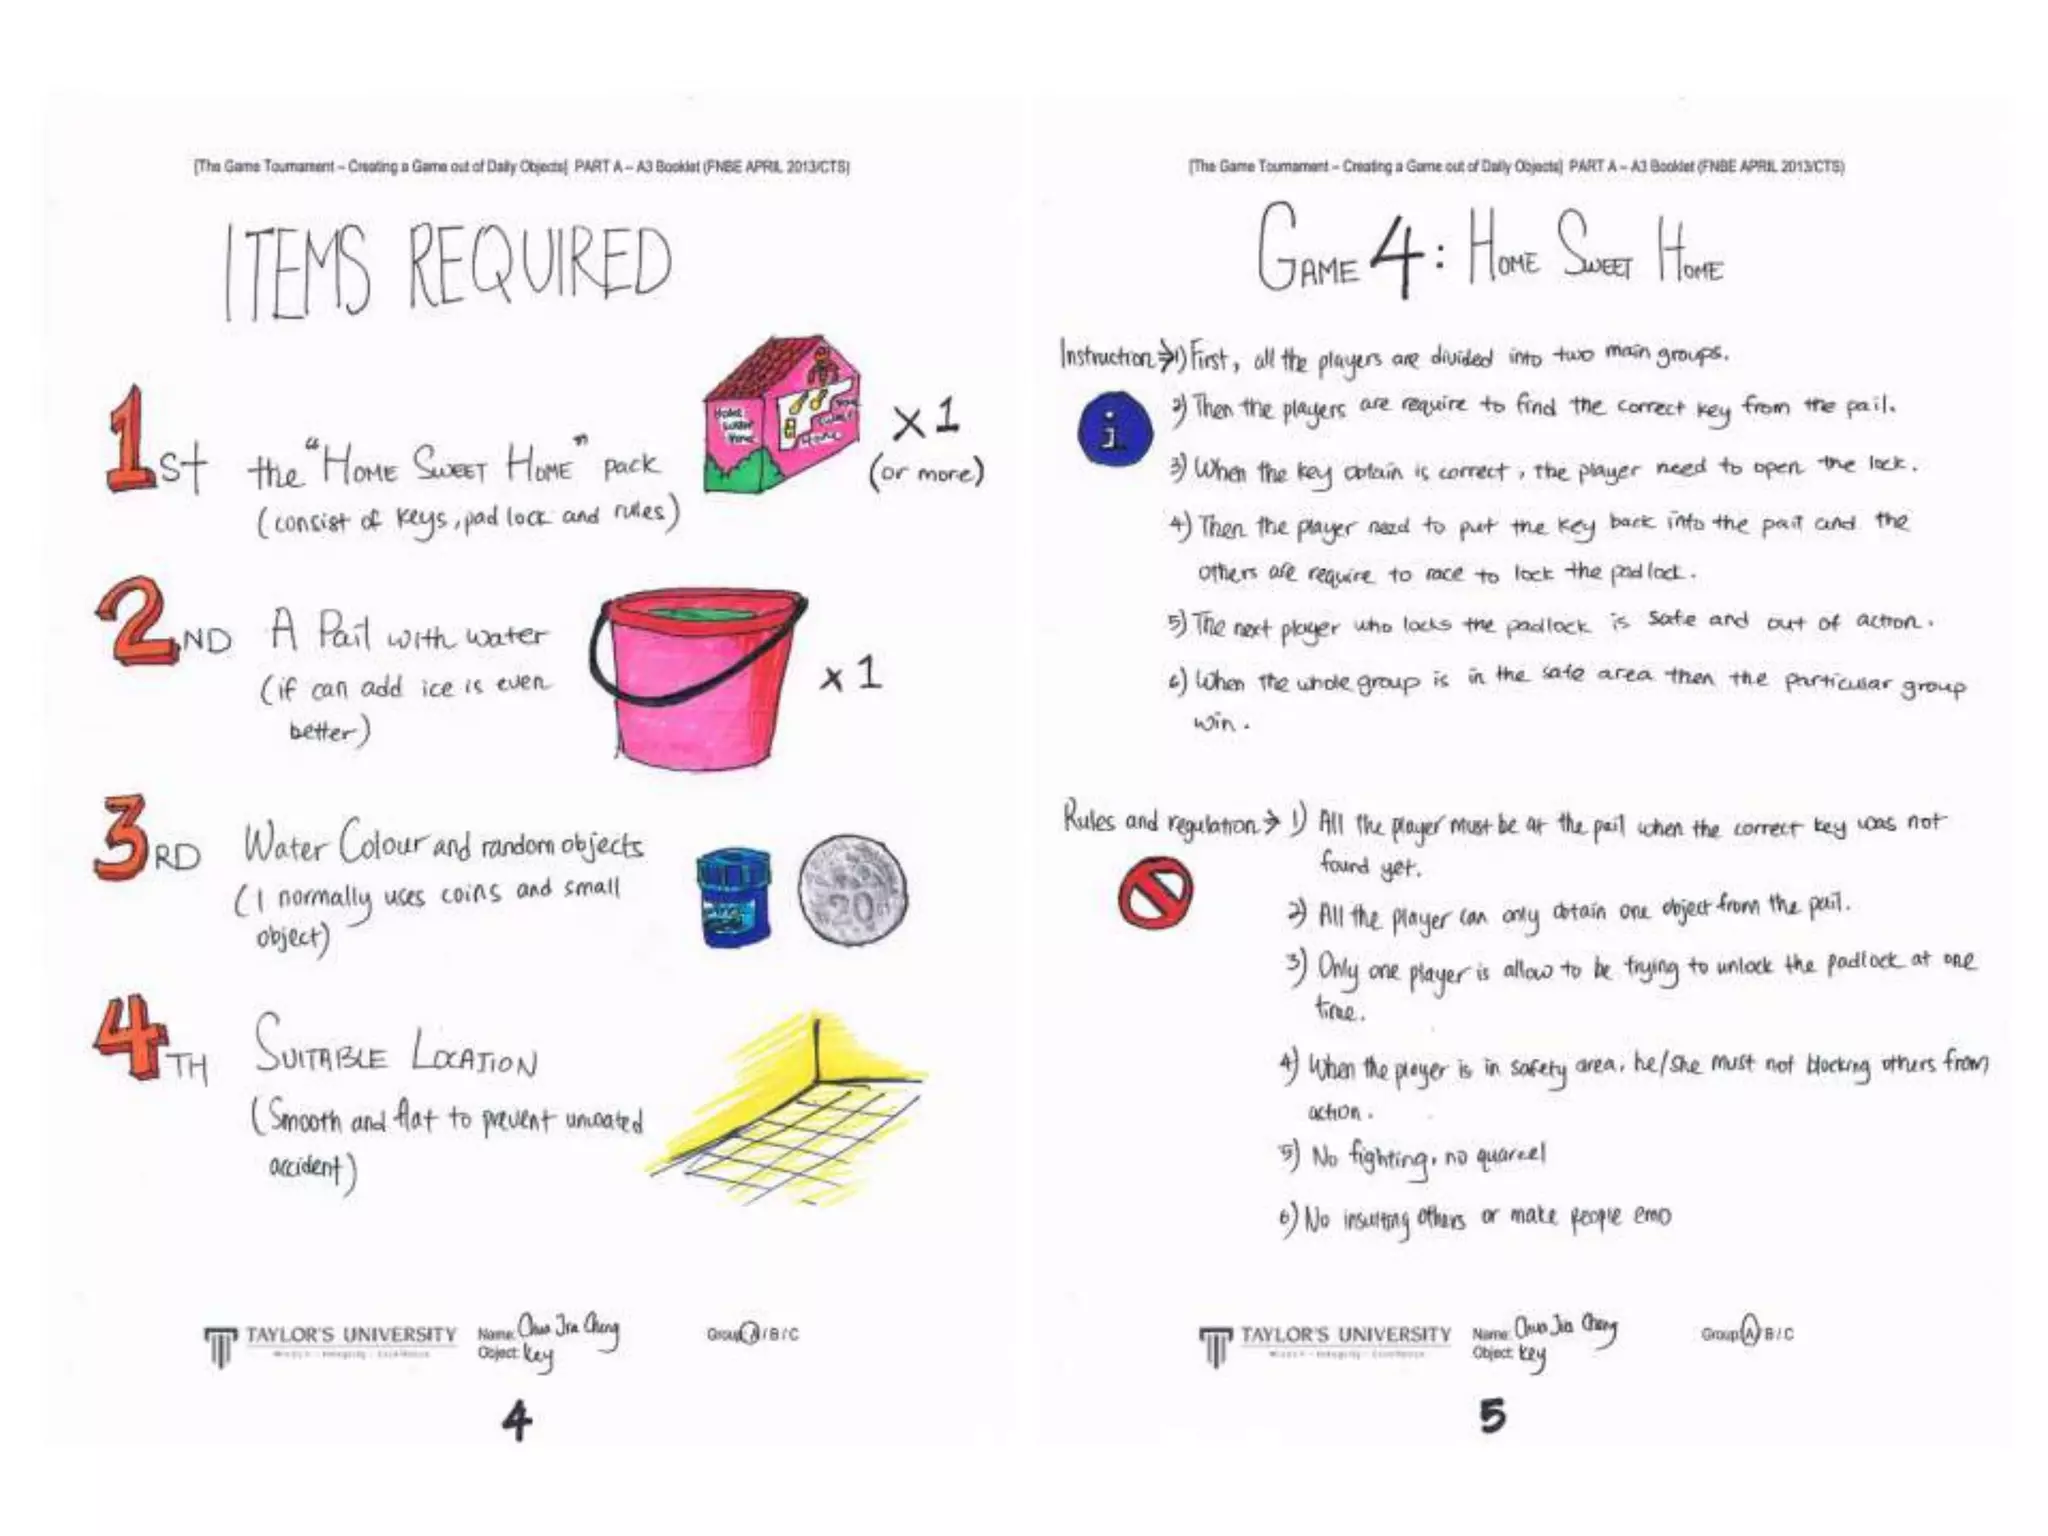 [The Game Tournament – Creating a Game out of Daily Objects] PART A – A3 Booklet (FNBE APRIL 2013/CTS)
ITEMS REQUIRED
1st the "HOME SWEET HOME" pack
(consist of keys, pad lock and rules)
HOME SWEET HOME
x 1
(or more)
2ND A Pail with water
(if can add ice is even
better)
x 1
3RD Water Colour and random objects
(I normally uses coins and small
object)
20
4TH SUITABLE LOCATION
(Smooth and flat to prevent unwated
accident)
TAYLOR'S UNIVERSITY
Name: Chua Jia Cheng
Object: key
Group A / B / C
4
[The Game Tournament – Creating a Game out of Daily Objects] PART A – A3 Booklet (FNBE APRIL 2013/CTS)
GAME 4: HOME SWEET HOME
Instruction → 1) First, all the players are divided into two main groups.
i
2) Then the players are require to find the correct key from the pail.
3) When the key obtain is correct, the player need to open the lock.
4) Then the player need to put the key back into the pail and the
others are require to race to lock the padlock.
5) The next player who locks the padlock is safe and out of action.
6) When the whole group is in the safe area then the particular group
win.
Rules and regulation → 1) All the player must be at the pail when the correct key was not
found yet.
2) All the player can only obtain one object from the pail.
3) Only one player is allow to be trying to unlock the padlock at one
time.
4) When the player is in safety area, he/she must not blocking others from
action.
5) No fighting, no quarrel
6) No insulting others or make people emo
TAYLOR'S UNIVERSITY
Name: Chua Jia Cheng
Object: key
Group A / B / C
5